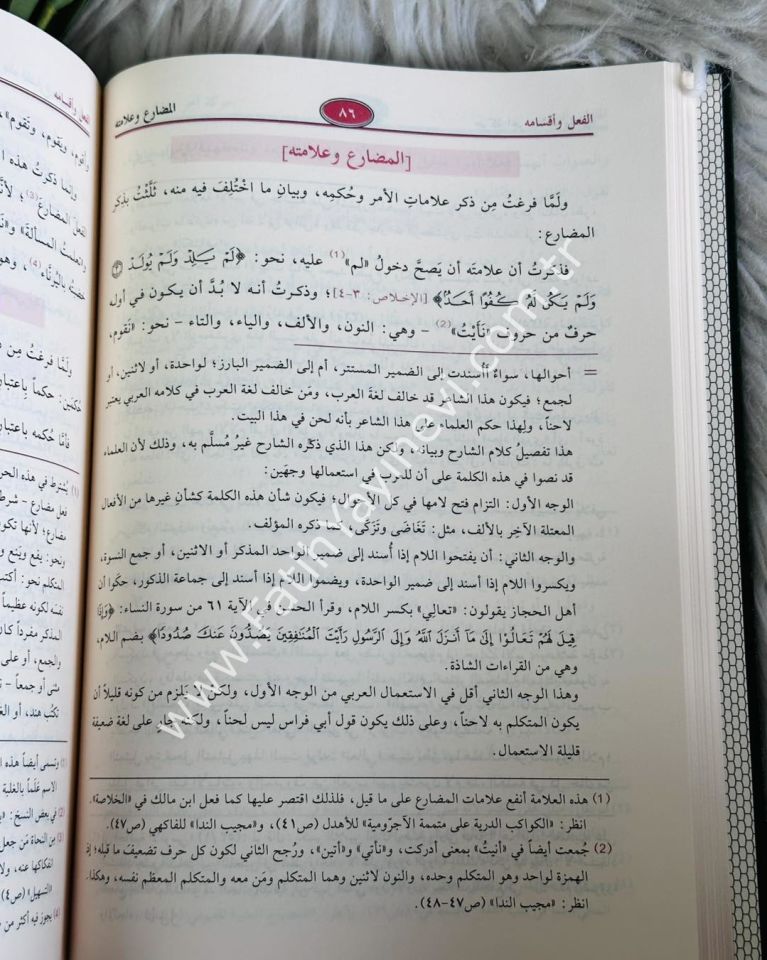 الفعل وأقسامه
٨٦
المضارع وعلامته
[المضارع وعلامته]
ولَمَّا فرغتُ مِن ذكر علاماتِ الأمر وحُكمِه، وبيانِ ما اخْتُلِفَ فيه منه، ثَلَّثْتُ بذِكر
المضارع:
فذكرتُ أن علامتَه أن يَصحَّ دخولُ «لم»(1) عليه، نحو: ﴿لَمْ يَلِدْ وَلَمْ يُولَدْ ٣
وَلَمْ يَكُن لَّهُ كُفُوًا أَحَدٌ﴾ [الإخلاص: ٣-٤]؛ وذكرتُ أنه لا بُدَّ أن يكون في أوله
حرفٌ من حروف «نَأَيْتُ»(2) – وهي: النون، والألف، والياء، والتاء – نحو: «نَقوم،
= أحوالها، سواءٌ أأسندت إلى الضمير المستتر، أم إلى الضمير البارز؛ لواحدة، أو لاثنين، أو
لجمع؛ فيكون هذا الشاعر قد خالف لغةَ العرب، ومَن خالف لغة العرب في كلامه العربي يعتبر
لاحناً، ولهذا حكم العلماء على هذا الشاعر بأنه لحن في هذا البيت.
هذا تفصيلُ كلام الشارح وبيانه، ولكن هذا الذي ذكره الشارح غيرُ مُسلَّم به، وذلك لأن العلماء
قد نصوا في هذه الكلمة على أن للعرب في استعمالها وجهَين:
الوجه الأول: التزام فتح لامها في كل الأحوال؛ فيكون شأن هذه الكلمة كشأن غيرها من الأفعال
المعتلة الآخِر بالألف، مثل: تَغَاضَى وتَزَكَّى، كما ذكره المؤلف.
والوجه الثاني: أن يفتحوا اللام إذا أُسند إلى ضمير الواحد المذكر أو الاثنين، أو جمع النسوة،
ويكسروا اللام إذا أسند إلى ضمير الواحدة، ويضموا اللام إذا أسند إلى جماعة الذكور، حكَوا أن
أهل الحجاز يقولون: «تعالِي» بكسر اللام، وقرأ الحسن في الآية ٦١ من سورة النساء: ﴿وَإِذَا
قِيلَ لَهُمْ تَعَالُوْا إِلَىٰ مَآ أَنزَلَ ٱللَّهُ وَإِلَى ٱلرَّسُولِ رَأَيْتَ ٱلْمُنَٰفِقِينَ يَصُدُّونَ عَنكَ صُدُودًا﴾ بضم اللام،
وهي من القراءات الشاذة.
وهذا الوجه الثاني أقل في الاستعمال العربي من الوجه الأول، ولكن لا يَلزم من كونه قليلاً أن
يكون المتكلم به لاحناً، وعلى ذلك يكون قول أبي فراس ليس لحناً، ولكنه جار على لغة ضعيفة
قليلة الاستعمال.
(1) هذه العلامة أنفع علامات المضارع على ما قيل، فلذلك اقتصر عليها كما فعل ابن مالك في «الخلاصة».
انظر: «الكواكب الدرية على متممة الآجرومية» للأهدل (ص٤١)، و«مجيب الندا» للفاكهي (ص٤٧).
(2) جُمعت أيضاً في «أنيتُ» بمعنى أدركت، و«نأتي» و«أتين»، ورُجح الثاني لكون كل حرف تضعيفَ ما قبله؛ إذ
الهمزة لواحد وهو المتكلم وحده، والنون لاثنين وهما المتكلم ومَن معه والمتكلم المعظم نفسه، وهكذا.
انظر: «مجيب الندا» (ص٤٧-٤٨).
www.FatihYayinevi.com.tr
الفعل وأقسامه
وأقوم، ويَقوم، وتَقوم»،
وإنما ذكرتُ هذه ا
الفعل المضارع(3)؛ لأنَّ